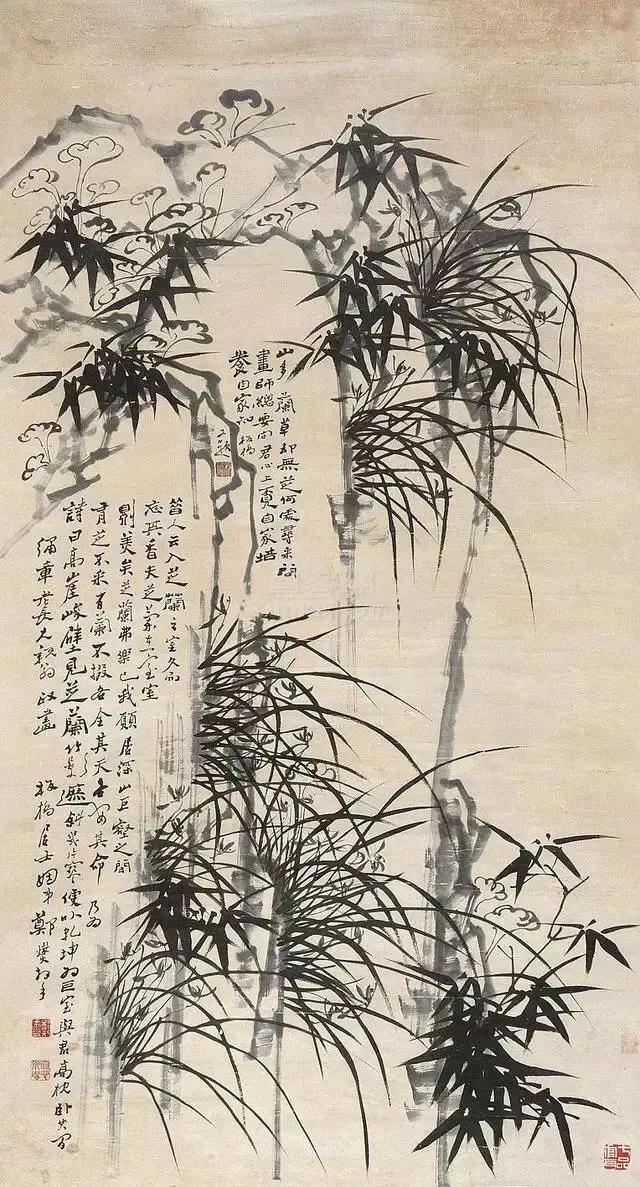 山多蘭草却無芝何處尋来問
畫師總要向君心上覓自家培
養自家知 板橋
又題
昔人云入芝蘭之室久而
忘其香夫芝蘭在室室
則美矣芝蘭弗樂也我願居深山巨壑之間
有芝不采有蘭不掇各全其天各安其命 乃為
詩曰高崖峻壁見芝蘭竹影遮斜幾片寒便以乾坤為巨室與君高枕臥其間
重老長兄親翁政畫 板橋居士姻弟鄭燮拜手